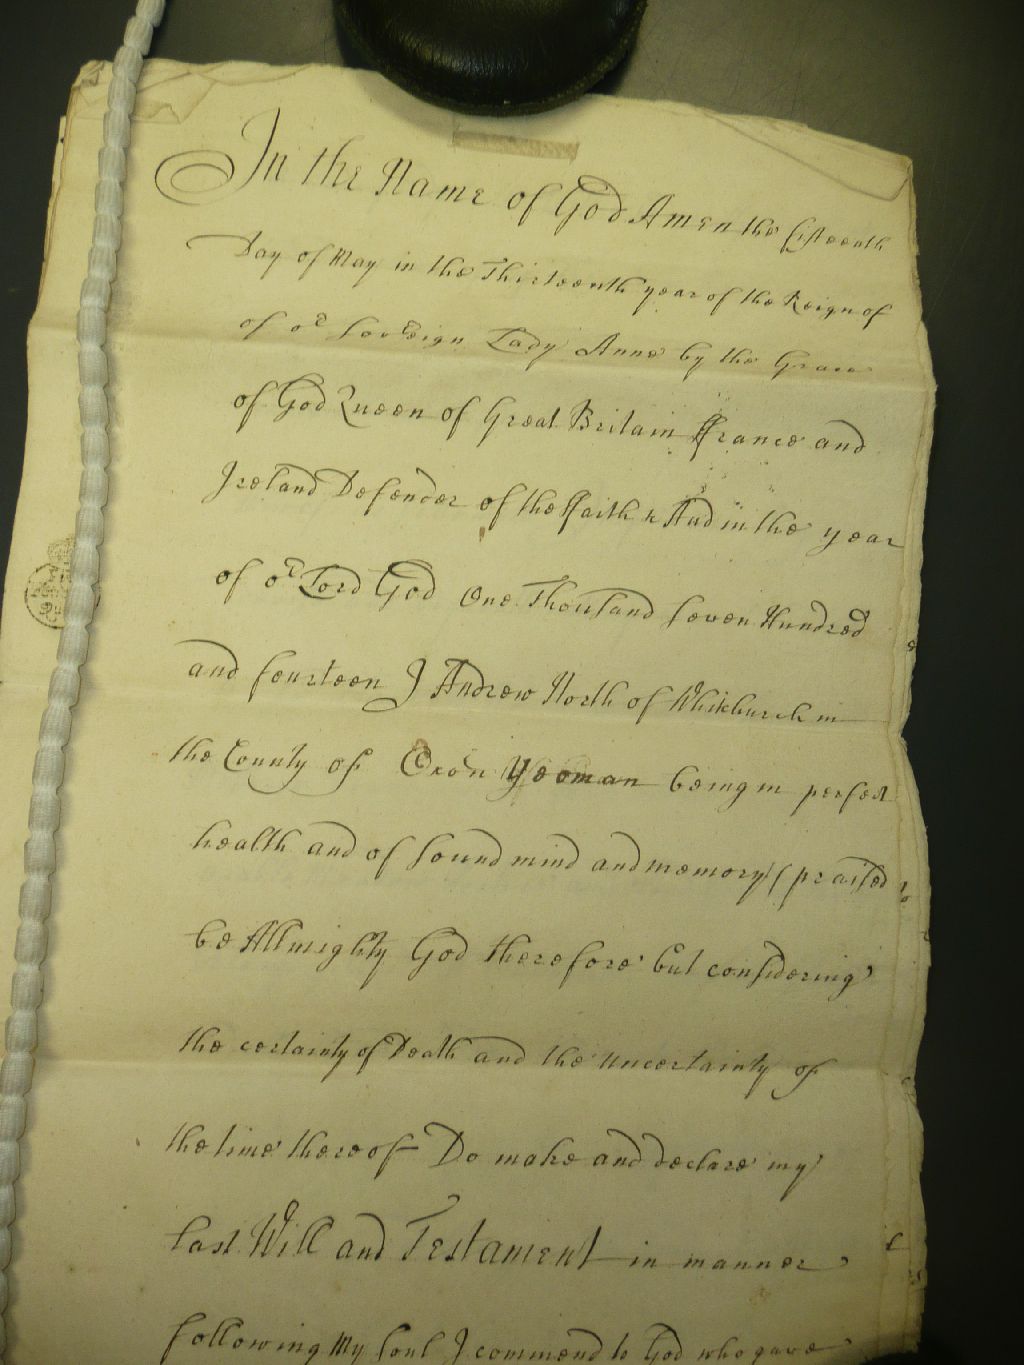 In the Name of God Amen the fifteenth
Day of May in the Thirteenth year of the Reign of
of or Soveraign Lady Anne by the Grace
of God Queen of Great Britain ffrance and
Ireland Defender of the ffaith & And in the year
of or Lord God One Thousand seven Hundred
and fourteen I Andrew North of Whitchurch in
the County of Oxon Yeoman being in perfect
health and of sound mind and memory (praised
be Allmighty God therefore but considering
the certainty of Death and the uncertainty of
the time thereof Do make and declare my
last Will and Testament in manner
following My soul I commend to God who gave